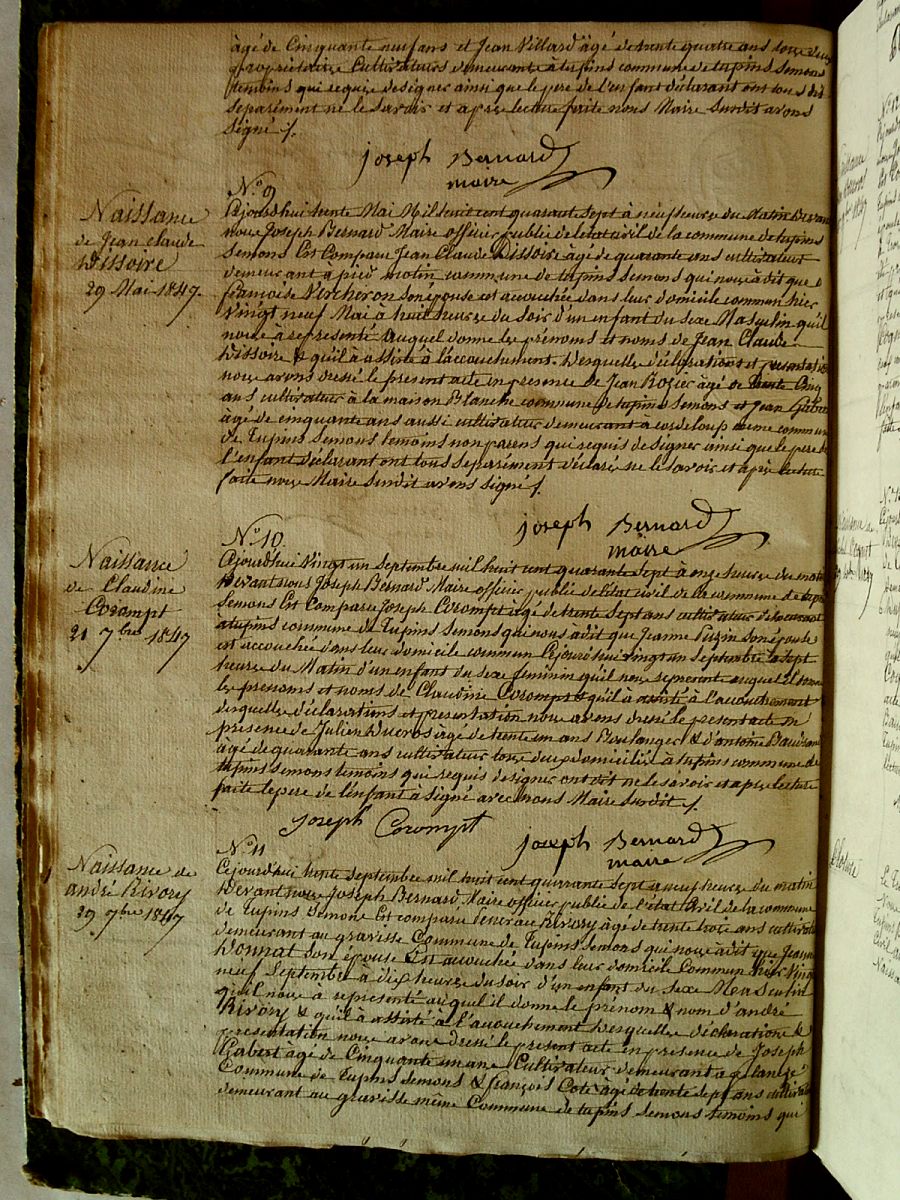 âgé de Cinquante neuf ans et Jean Villard âgé de trente quatre ans tous deux
propriétaires Cultivateurs demeurants à tupins commune de tupins semons
temoins qui requis de signer ainsi que le pere de l'enfant déclarant ont tous dit
separément ne le savoir et après lecture faite nous Maire susdit avons
signé /.
joseph Bernard
maire
N.o 9
Naissance
de Jean Claude
Dissoire
29 Mai 1847.
Cejourdhui trente Mai Mil huit cent quarante sept à neuf heures du Matin Devant
nous Joseph Bernard Maire officier public de letat civil de la commune de tupins
semons Est Comparu Jean Claude Dissoire âgé de quarante ans cultivateur
demeurant a pied molin commune de tupins semons qui nous à dit que
françoise Vercheron son épouse est accouchée dans leur domicile commun hier
vingt neuf Mai à huit heures du soir d'un enfant du sexe Masculin qu'il
nous à representé auquel donne les prénoms et noms de Jean Claude
Dissoire & qu'il à assisté à l'accouchement. Desquelles déclarations et presentation
nous avons dressé le present acte en presence de Jean Rozier âgé de trente cinq
ans cultivateur à la maison Blanche commune de tupins semons et Jean
âgé de cinquante ans aussi cultivateur demeurant a cordeloup meme commune
de Tupins semons temoins non parens qui requis de signer ainsi que le pere de
l'enfant déclarant ont tous séparément déclaré ne le savoir et après lecture
faite nous Maire susdit avons signé /.
joseph Bernard
maire
N.o 10.
Naissance
de Claudine
Corompt
21 7bre 1847
Cejourd'hui Vingt un septembre mil huit cent quarante sept à onze heures du matin
Devant nous Joseph Bernard Maire officier public de l'état civil de la commune de tupins
semons Est Comparu Joseph Corompt agé de trente sept ans cultivateur demeurant
a tupins commune de Tupins semons qui nous à dit que Jeanne Puzin son épouse
est accouchée dans leur domicile commun Cejourd'hui vingt un septembre à sept
heures du Matin d'un enfant du sexe feminin qu'il nous represente auquel il donne
les prenoms et noms de Claudine Corompt & qu'il à assisté à l'accouchement
desquelles déclarations et presentation nous avons dressé le present acte en
presence de Julien Ducros âgé de trente un ans Boulanger & d'antoine
âgé de quarante ans cultivateur tous deux domiciliés à tupins commune de
tupins semons temoins qui requis de signer ont dit ne le savoir et apres lecture
faite le pere de l'enfant à signé avec nous Maire susdit /.
Joseph Corompt
joseph Bernard
maire
N.o 11
Naissance de
andré Rivory
29 7bre 1847
Cejourd'hui trente septembre mil huit cent quarante sept a neuf heures du matin
Devant nous Joseph Bernard Maire officier public de l'état civil de la commune
de Tupins semons Est comparu Rivory âgé de trente trois ans cultivateur
demeurant au gravisse Commune de Tupins semons qui nous à dit que Jeanne
Donnat son épouse Est accouchée dans leur domicile Commun hier Vingt
neuf Septembre à dix heures du soir d'un enfant du sexe Masculin
qu'il nous à representé auquel il donne le prénom & nom d'andré
Rivory & qu'il à assisté à l'accouchement Desquelles déclarations &
presentation nous avons dressé le present acte en presence de Joseph
Gabert âgé de Cinquante un ans Cultivateur demeurant a
Commune de Tupins semons & françois Cote âgé de trente sept ans cultivateur
demeurant au gravisse même Commune de tupins semons temoins qui